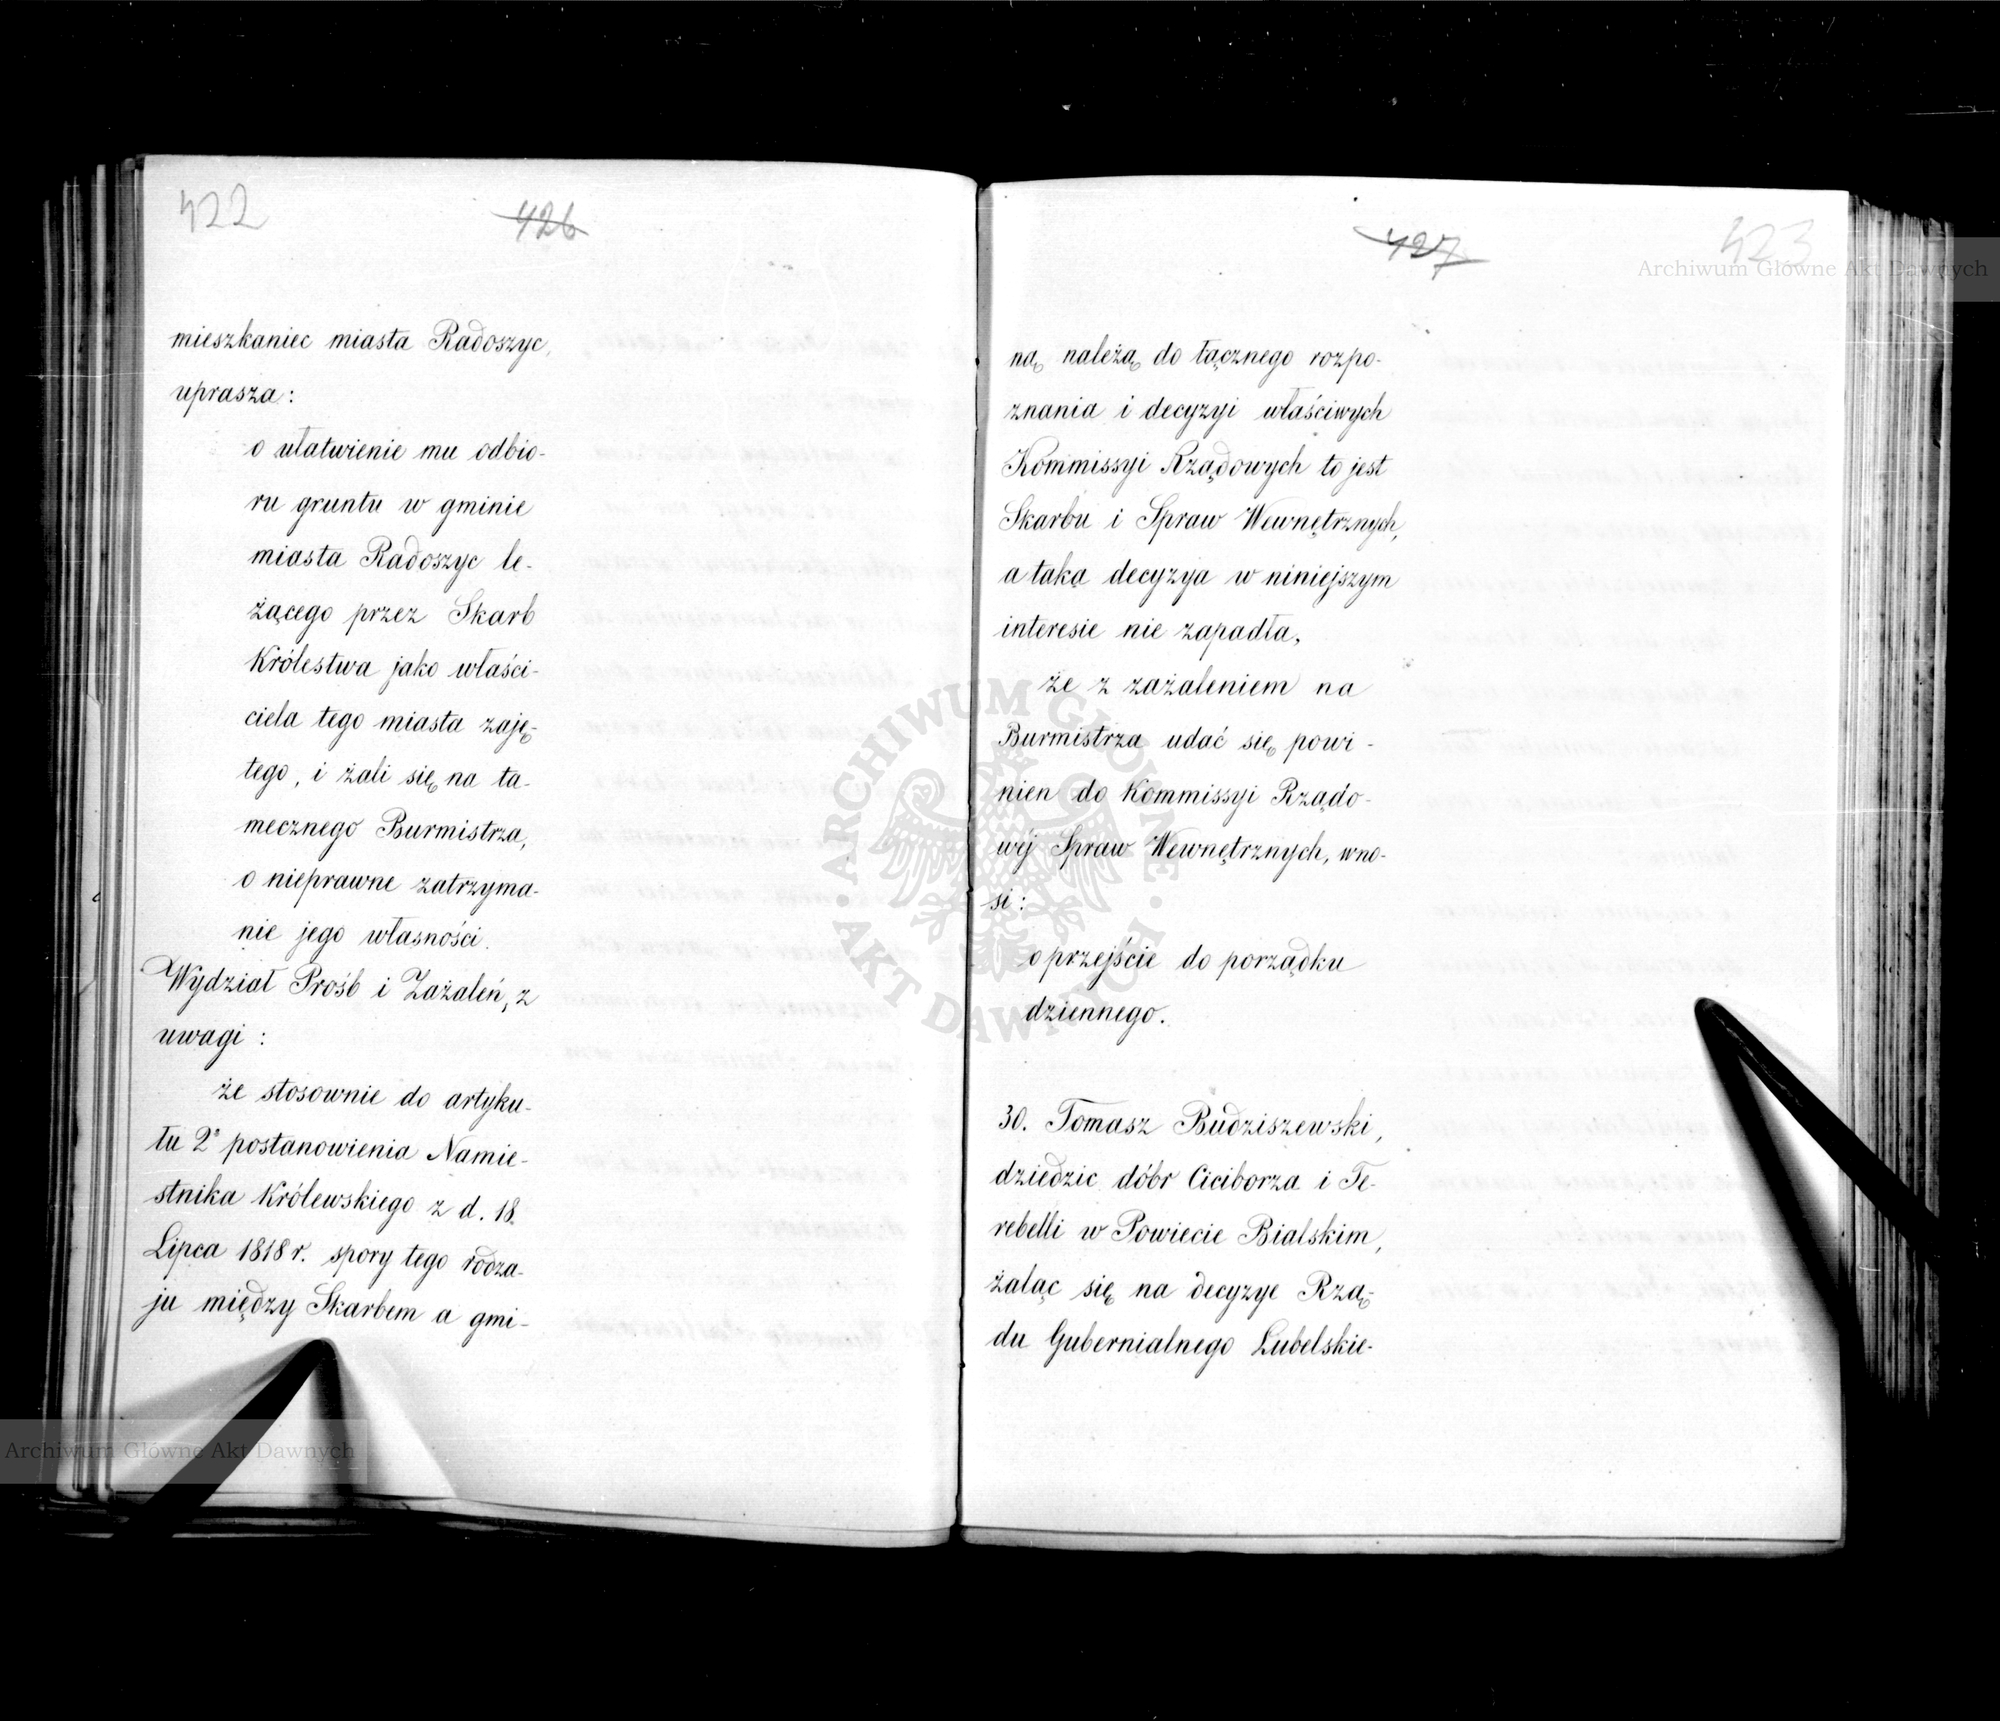 422
426
mieszkaniec miasta Radoszyc,
uprasza:
o ułatwienie mu odbio-
ru gruntu w gminie
miasta Radoszyc le-
żącego przez Skarb
Królestwa jako właści-
ciela tego miasta zaję-
tego, i żali się na ta-
mecznego Burmistrza,
o nieprawne zatrzyma-
nie jego własności.
Wydział Prośb i Zażaleń, z
uwagi:
że stosownie do artyku-
łu 2º postanowienia Namie-
stnika Królewskiego z d. 18
Lipca 1818 r. spory tego rodza-
ju między Skarbem a gmi-
427
423
ną należą do łącznego rozpo-
znania i decyzyi właściwych
Kommissyi Rządowych to jest
Skarbu i Spraw Wewnętrznych,
a taka decyzya w niniejszym
interesie nie zapadła,
że z zażaleniem na
Burmistrza udać się powi-
nien do Kommissyi Rządo-
wéj Spraw Wewnętrznych, wno-
si:
o przejście do porządku
dziennego.
30. Tomasz Budziszewski,
dziedzic dóbr Ciciborza i Te-
rebelli w Powiecie Bialskim,
żaląc się na decyzye Rzą-
du Gubernialnego Lubelskie-
Archiwum Główne Akt Dawnych
Archiwum Główne Akt Dawnych
ARCHIWUM GŁÓWNE AKT DAWNYCH